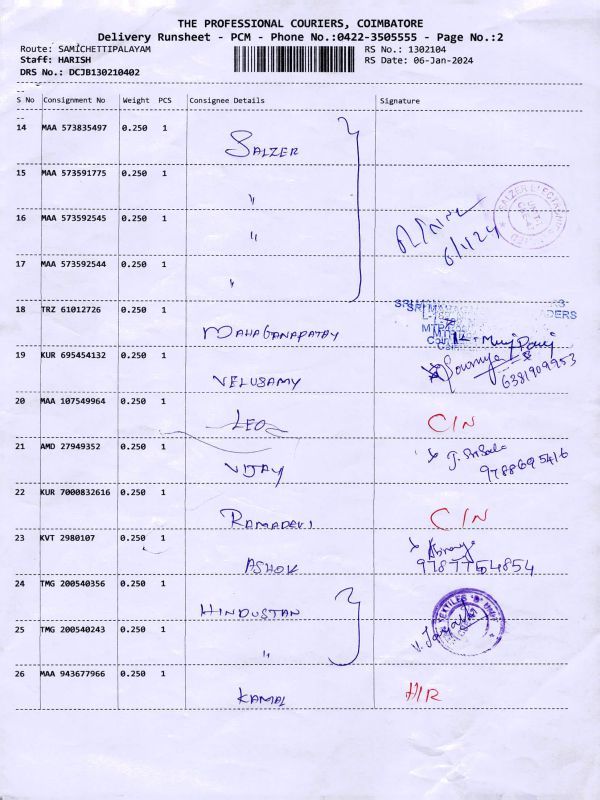 THE PROFESSIONAL COURIERS, COIMBATORE
Delivery Runsheet - PCM - Phone No.:0422-3505555 - Page No.:2
Route: SAMICHETTIPALAYAM RS No.: 1302104
Staff: HARISH RS Date: 06-Jan-2024
DRS No.: DCJB130210402
S No Consignment No Weight PCS Consignee Details Signature
14 MAA 573835497 0.250 1 SALZER
15 MAA 573591775 0.250 1 "
16 MAA 573592545 0.250 1 " 6/1/24
17 MAA 573592544 0.250 1 "
18 TRZ 61012726 0.250 1 MAHAGANAPATHY
19 KUR 695454132 0.250 1 VELUSAMY 6381909953
20 MAA 107549964 0.250 1 LEO C/N
21 AMD 27949352 0.250 1 VIJAY 9788695416
22 KUR 7000832616 0.250 1 RAMADEVI C/N
23 KVT 2980107 0.250 1 ASHOK 9787754854
24 TMG 200540356 0.250 1 HINDUSTAN
25 TMG 200540243 0.250 1 "
26 MAA 943677966 0.250 1 KAMAL H/R